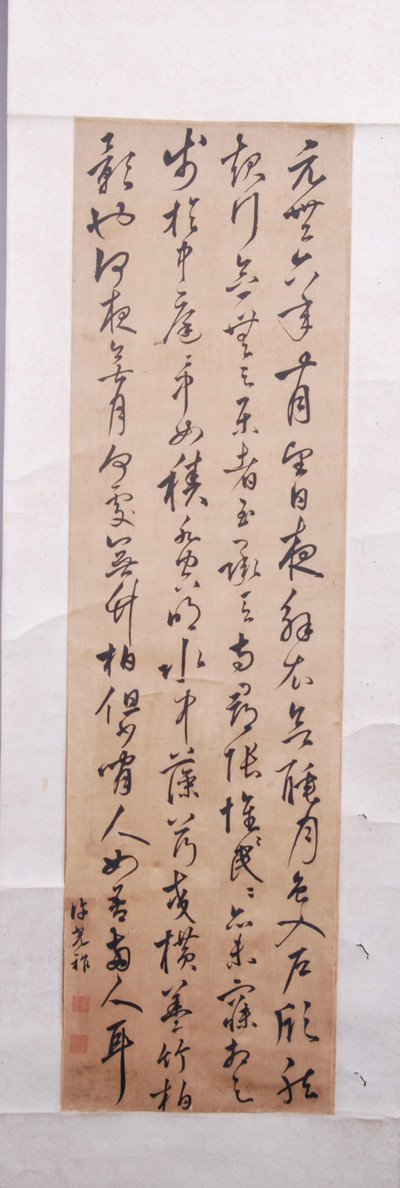 元豐六年十月望日夜解衣欲睡月色入戶欣然
起行念無與樂者至承天寺尋張懷〻民〻亦未寢相與
步於中庭〻下如積水空明水中藻荇交橫蓋竹柏
影也何夜無月何處無竹柏但少閒人如吾兩人耳
許光祚